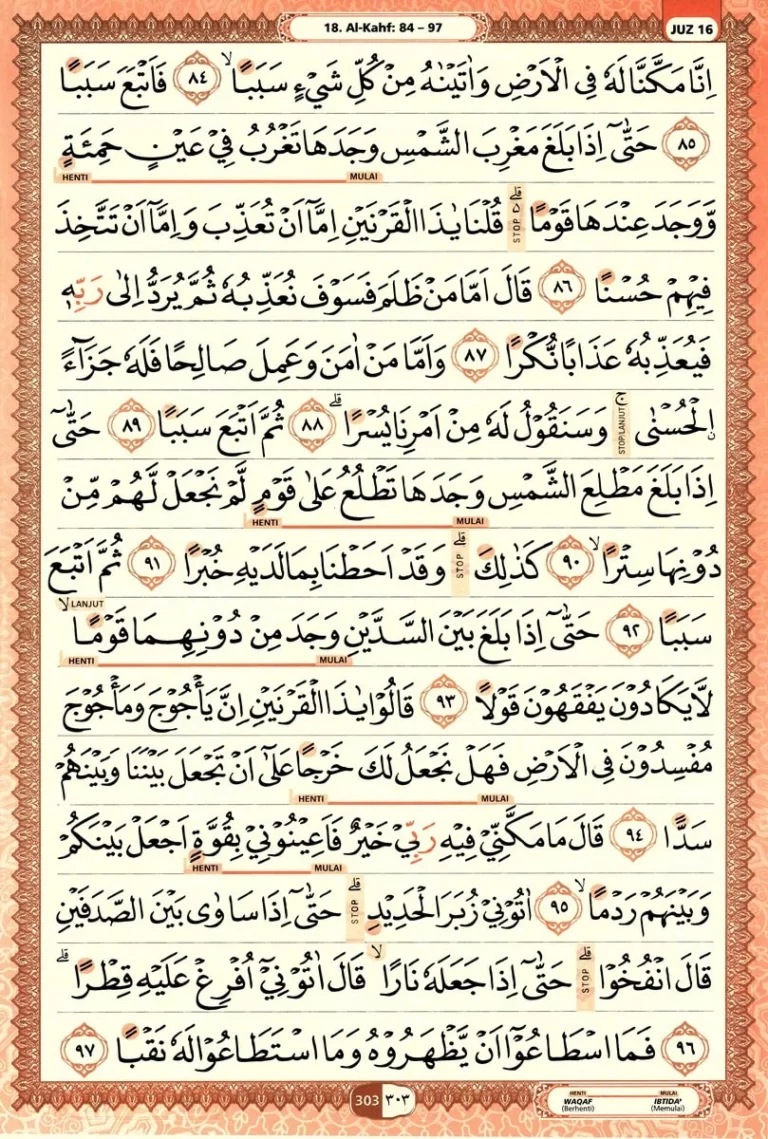 18. Al-Kahf: 84 – 97
JUZ 16
اِنَّا مَكَّنَّا لَهٗ فِى الْاَرْضِ وَاٰتَيْنٰهُ مِنْ كُلِّ شَيْءٍ سَبَبًا ۙ ٨٤ فَاَتْبَعَ سَبَبًا
٨٥ حَتّٰىٓ اِذَا بَلَغَ مَغْرِبَ الشَّمْسِ وَجَدَهَا تَغْرُبُ فِيْ عَيْنٍ حَمِئَةٍ
MULAI HENTI
وَّوَجَدَ عِنْدَهَا قَوْمًا ۗ STOP قُلْنَا يٰذَا الْقَرْنَيْنِ اِمَّآ اَنْ تُعَذِّبَ وَاِمَّآ اَنْ تَتَّخِذَ
فِيْهِمْ حُسْنًا ٨٦ قَالَ اَمَّا مَنْ ظَلَمَ فَسَوْفَ نُعَذِّبُهٗ ثُمَّ يُرَدُّ اِلٰى رَبِّهٖ
فَيُعَذِّبُهٗ عَذَابًا نُّكْرًا ٨٧ وَاَمَّا مَنْ اٰمَنَ وَعَمِلَ صَالِحًا فَلَهٗ جَزَاۤءً
ۨالْحُسْنٰى ۚ STOP/LANJUT وَسَنَقُوْلُ لَهٗ مِنْ اَمْرِنَا يُسْرًا ۗ ٨٨ ثُمَّ اَتْبَعَ سَبَبًا ٨٩ حَتّٰىٓ
اِذَا بَلَغَ مَطْلِعَ الشَّمْسِ وَجَدَهَا تَطْلُعُ عَلٰى قَوْمٍ لَّمْ نَجْعَلْ لَّهُمْ مِّنْ
MULAI HENTI
دُوْنِهَا سِتْرًا ۙ ٩٠ كَذٰلِكَ ۗ STOP وَقَدْ اَحَطْنَا بِمَا لَدَيْهِ خُبْرًا ٩١ ثُمَّ اَتْبَعَ
سَبَبًا ٩٢ حَتّٰىٓ اِذَا بَلَغَ بَيْنَ السَّدَّيْنِ وَجَدَ مِنْ دُوْنِهِمَا قَوْمًا ۙ LANJUT
MULAI HENTI
لَّا يَكَادُوْنَ يَفْقَهُوْنَ قَوْلًا ٩٣ قَالُوْا يٰذَا الْقَرْنَيْنِ اِنَّ يَأْجُوْجَ وَمَأْجُوْجَ
مُفْسِدُوْنَ فِى الْاَرْضِ فَهَلْ نَجْعَلُ لَكَ خَرْجًا عَلٰٓى اَنْ تَجْعَلَ بَيْنَنَا وَبَيْنَهُمْ
MULAI HENTI
سَدًّا ٩٤ قَالَ مَا مَكَّنِّيْ فِيْهِ رَبِّيْ خَيْرٌ فَاَعِيْنُوْنِيْ بِقُوَّةٍ اَجْعَلْ بَيْنَكُمْ
MULAI HENTI
وَبَيْنَهُمْ رَدْمًا ۙ ٩٥ اٰتُوْنِيْ زُبَرَ الْحَدِيْدِ ۗ STOP حَتّٰىٓ اِذَا سَاوٰى بَيْنَ الصَّدَفَيْنِ
قَالَ انْفُخُوْا ۗ STOP حَتّٰىٓ اِذَا جَعَلَهٗ نَارًا ۙ قَالَ اٰتُوْنِيْٓ اُفْرِغْ عَلَيْهِ قِطْرًا ۗ
٩٦ فَمَا اسْطَاعُوْٓا اَنْ يَّظْهَرُوْهُ وَمَا اسْتَطَاعُوْا لَهٗ نَقْبًا ٩٧
303 ٣٠٣
HENTI MULAI
WAQAF IBTIDA'
(Berhenti) (Memulai)